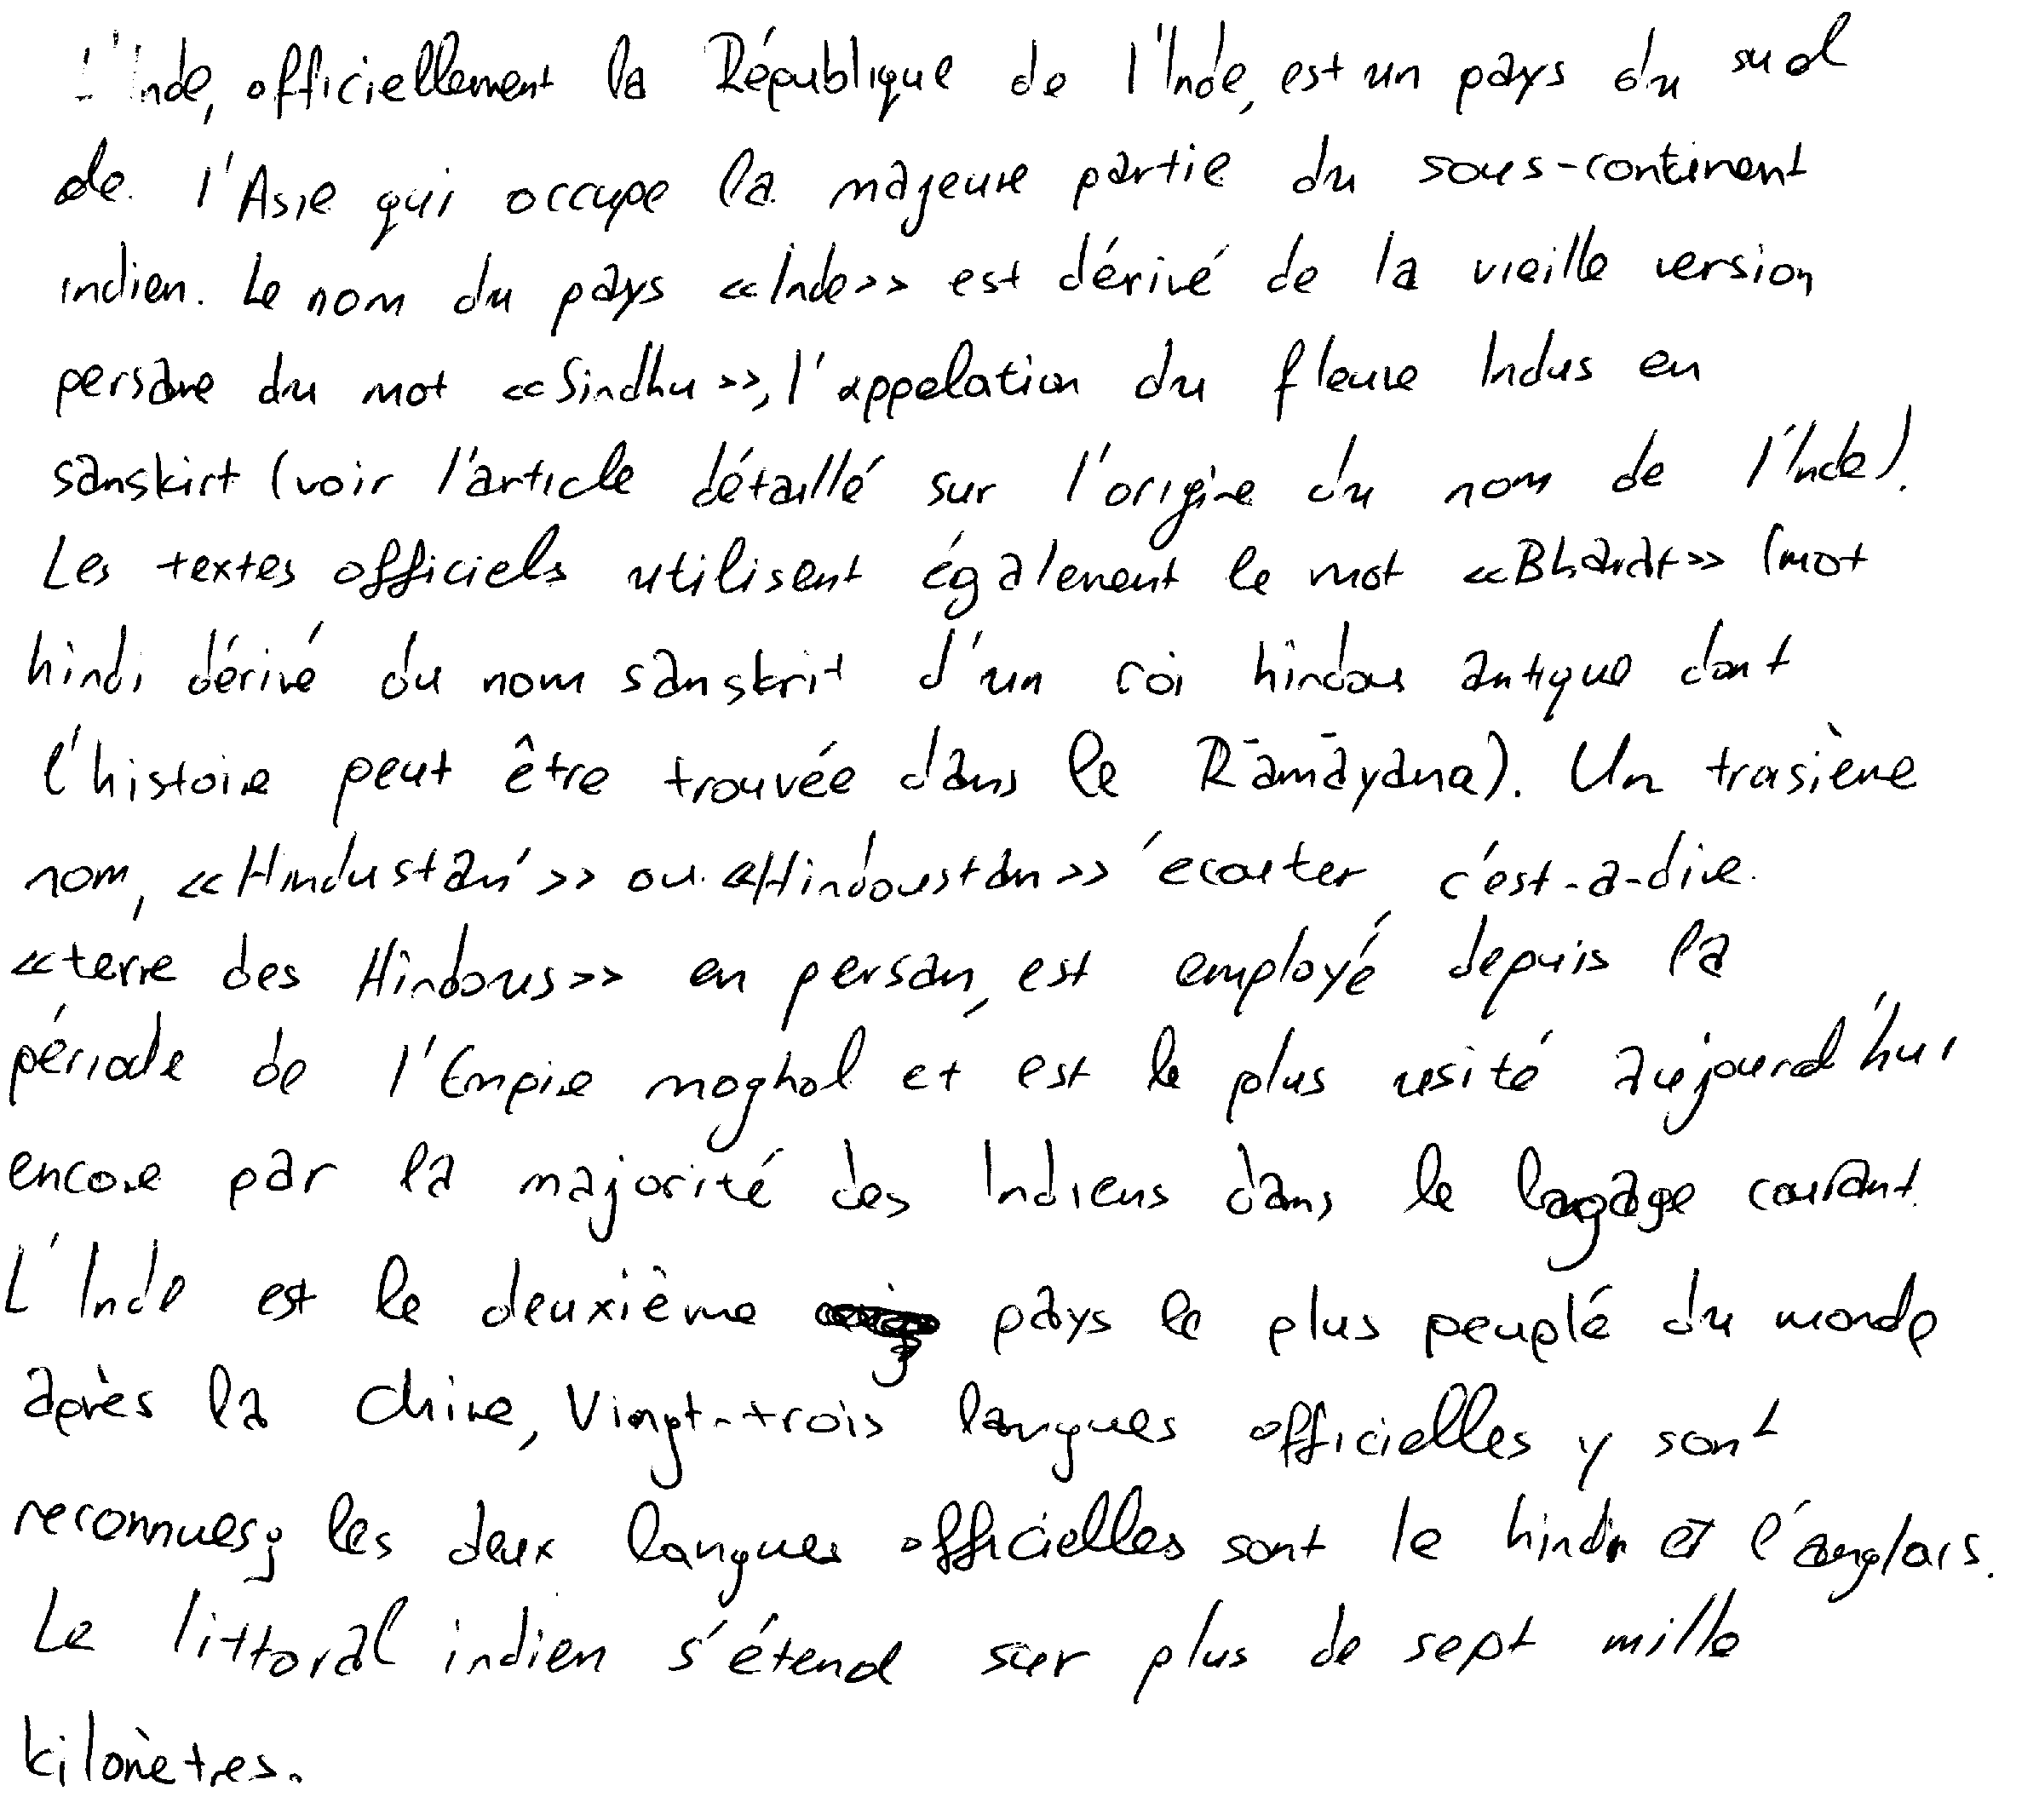 L'Inde, officiellement la République de l'Inde, est un pays du sud
de l'Asie qui occupe la majeure partie du sous-continent
indien. Le nom du pays «Inde» est dérivé de la vieille version
persane du mot «Sindhu», l'appelation du fleuve Indus en
sanskirt (voir l'article détaillé sur l'origine du nom de l'Inde).
Les textes officiels utilisent également le mot «Bharat» (mot
hindi dérivé du nom sanskrit d'un roi hindous antique dont
l'histoire peut être trouvée dans le Rāmāyana). Un troisième
nom, «Hindustan» ou «Hindoustan» écouter c'est-a-dire
«terre des Hindous» en persan, est employé depuis la
période de l'Empire moghol et est le plus usité aujourd'hui
encore par la majorité des Indiens dans le lagage courant.
L'Inde est le deuxième pays le plus peuplé du monde
après la Chine, Vingt-trois langues officielles y sont
reconnues; les deux langues officielles sont le hindi et l'anglais.
Le littoral indien s'étend sur plus de sept mille
kilomètres.